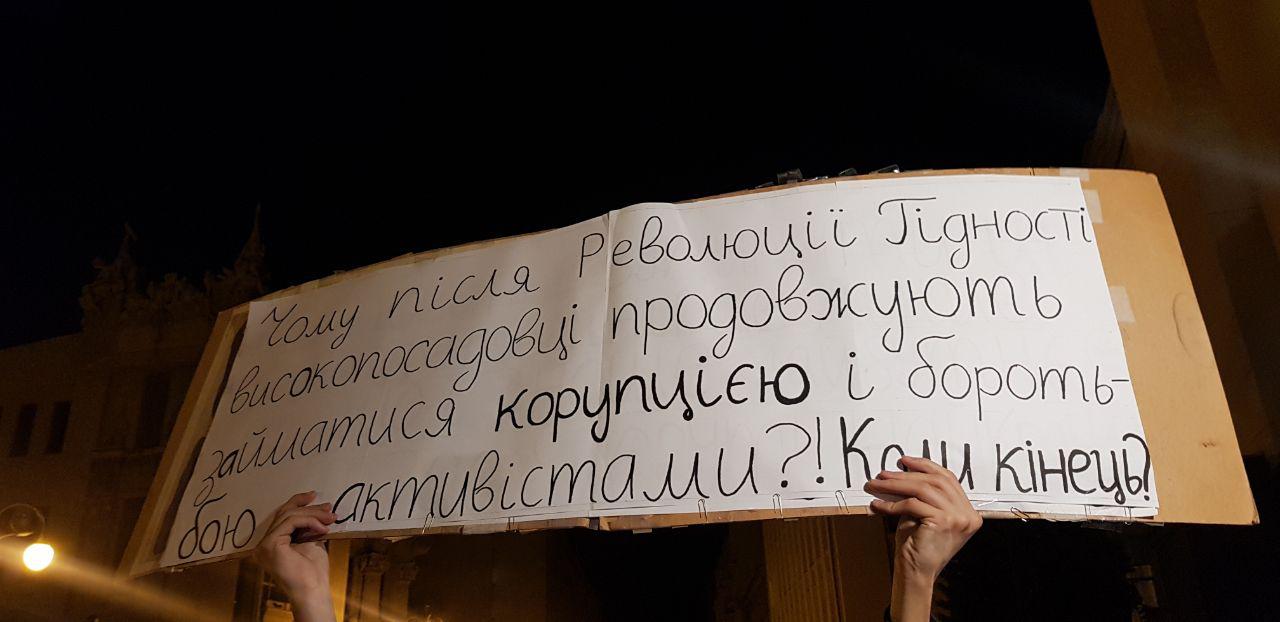 Чому після Революції Гідності
високопосадовці продовжують
займатися корупцією і бороть-
бою активістами?! Коли кінець?